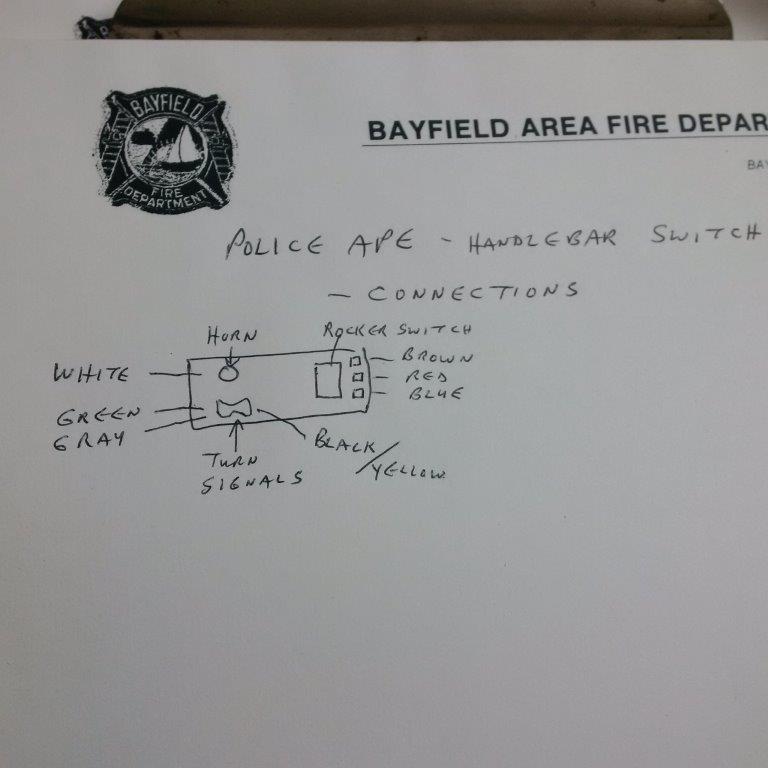 BAYFIELD
FIRE
DEPARTMENT
BAYFIELD AREA FIRE DEPAR
BAY
POLICE APE - HANDLEBAR SWITCH
- CONNECTIONS
HORN
ROCKER SWITCH
WHITE
BROWN
RED
BLUE
GREEN
GRAY
BLACK/YELLOW
TURN
SIGNALS